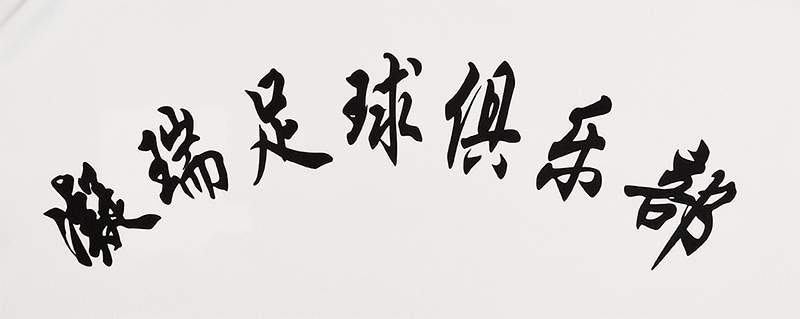 瑞足球俱乐部